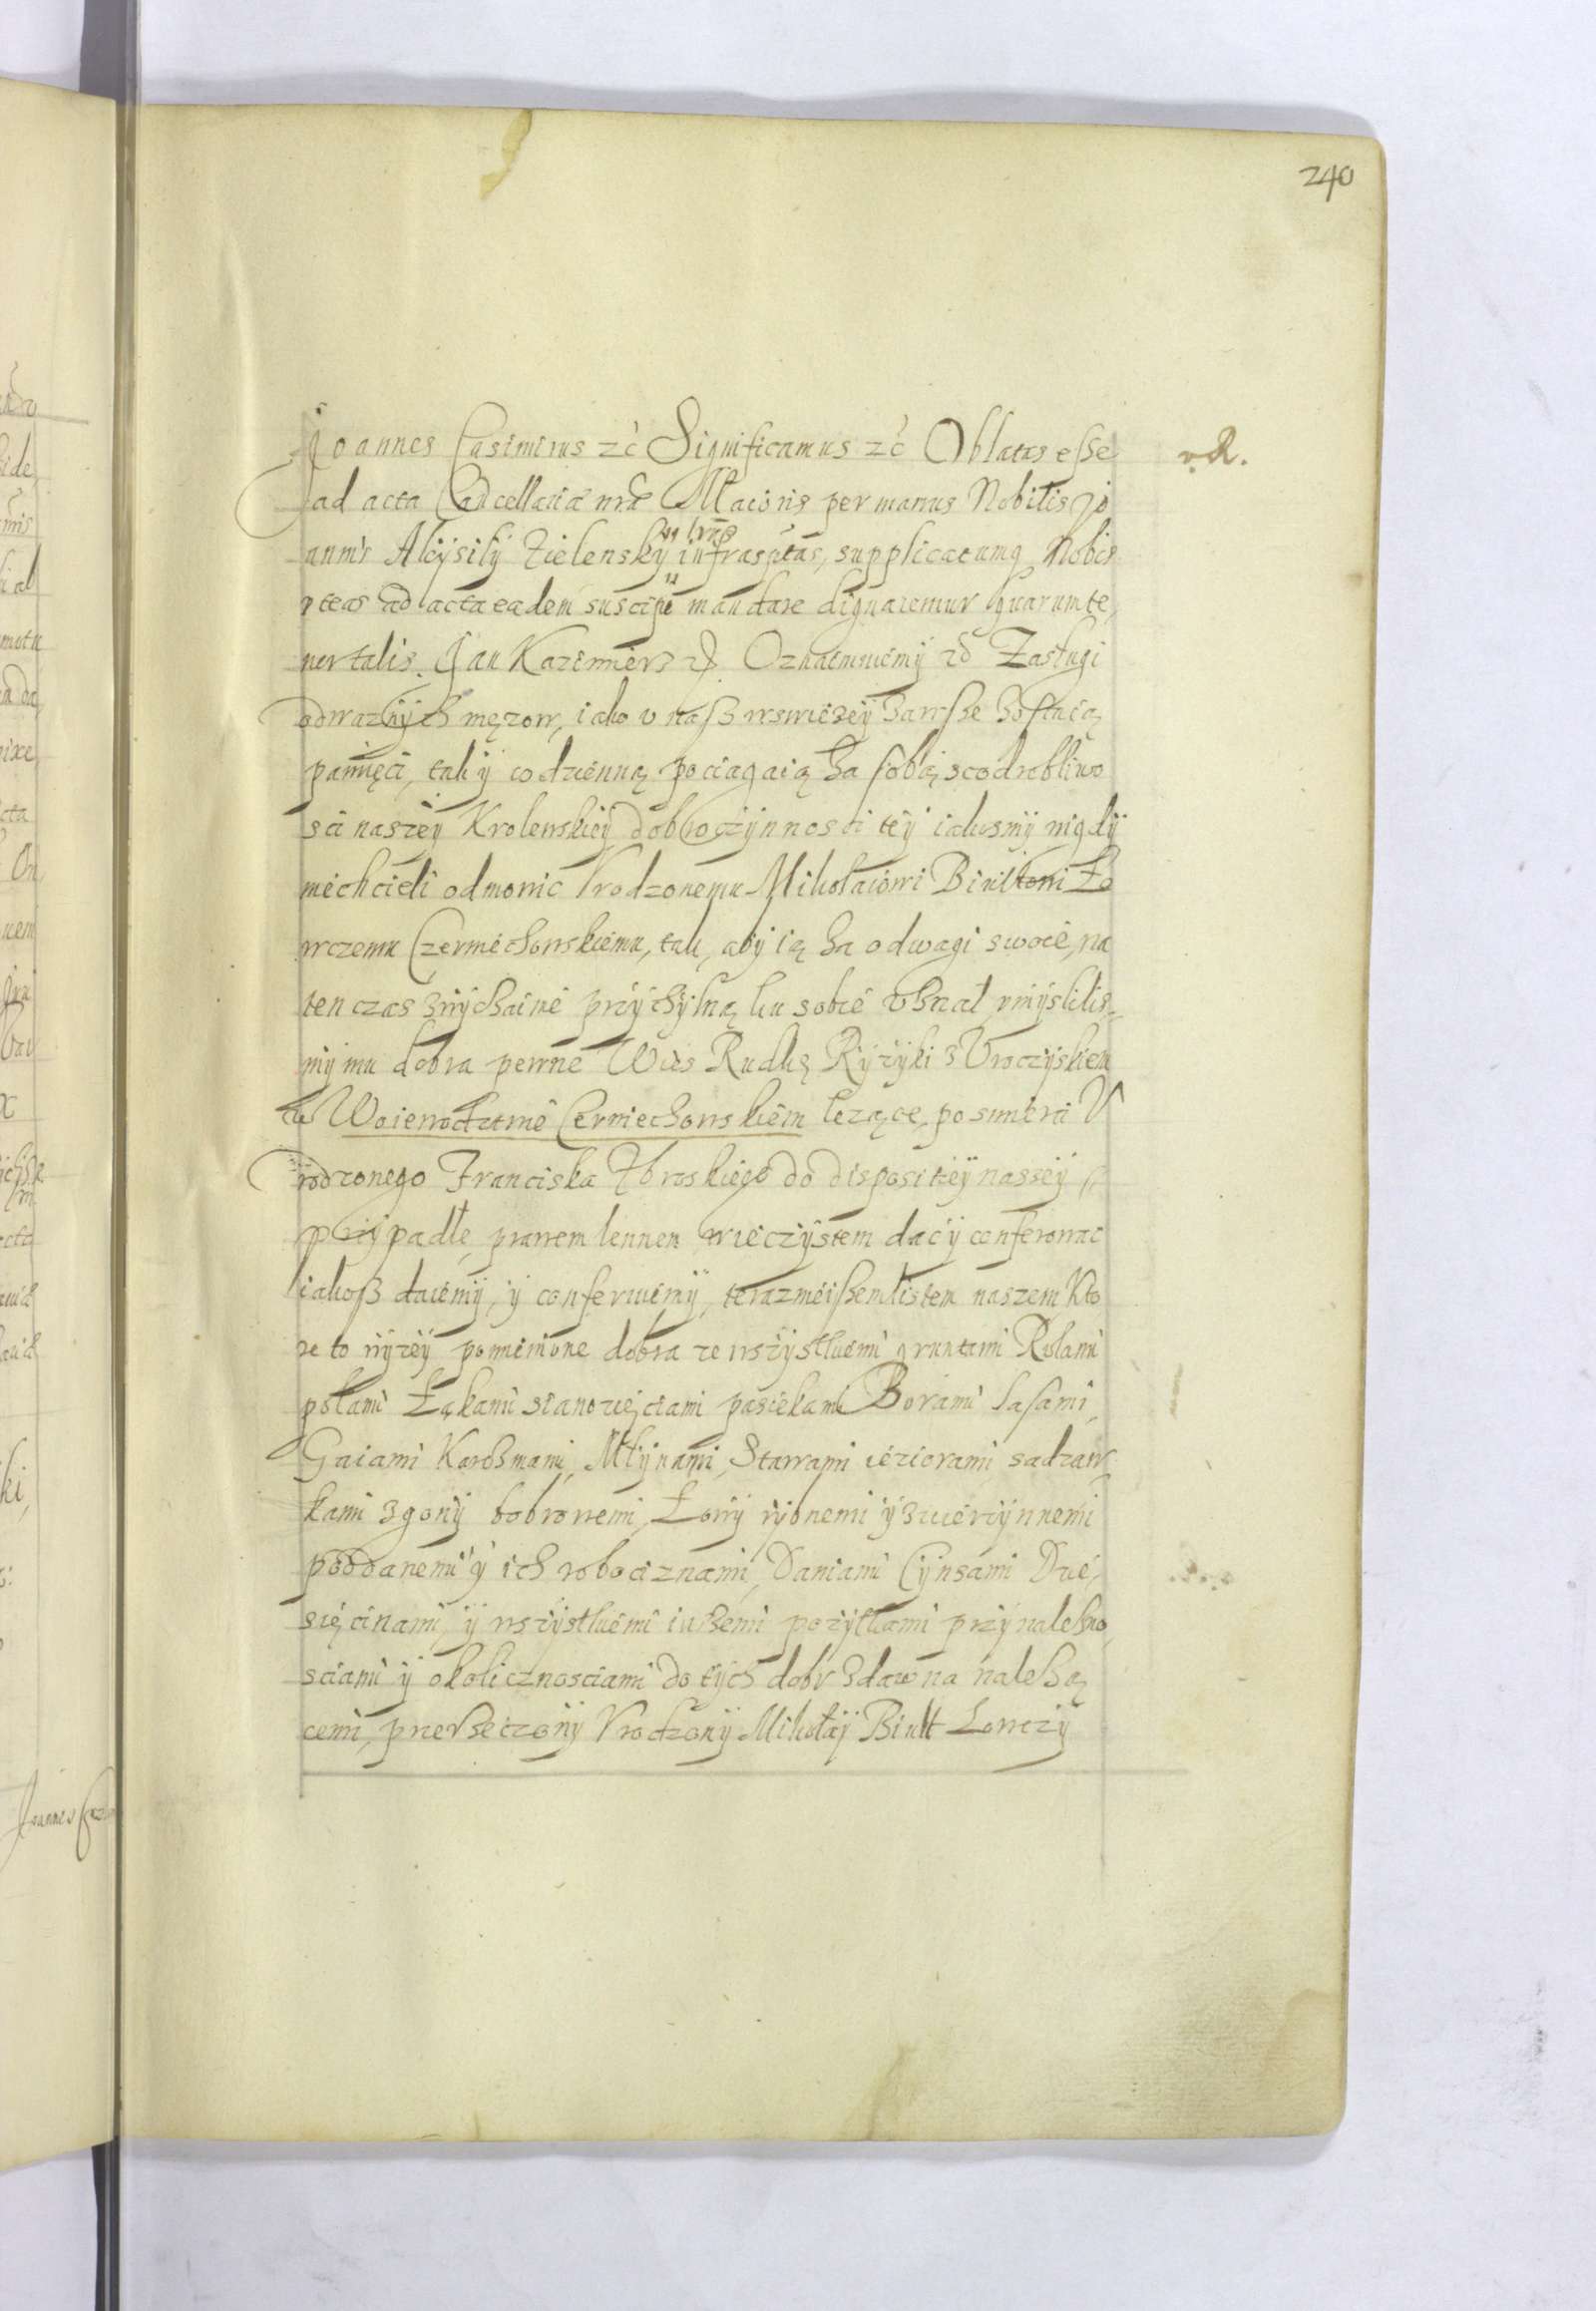 240
Joannes Casimirus zc Significamus zc Oblatas esse
v. R.
ad acta Cancellariae nrae Maioris per manus Nobilis Jo
annis Alojsij Zielensky lras infrascptas, supplicatumq Nobis
vt eas ad acta eadem suscipi mandare dignaremur Quarum te,
nor talis. Jan Kazimierz Oznaimuiemÿ zc Zasługi
odwaznÿch męzow, iako v nasz wswiezeÿ zawsze zostaią
pamięci, tak ÿ codzienną pociagaią za sobą sczodrobliwo
sci naszeÿ Krolewskieÿ dobroczÿnnosci teÿ iakosmÿ nigdÿ
niechcieli odmowic Vrodzonemu Mikołaiowi Biultowi Ło
wczemu Czerniechowskiemu, tak, abÿ ią za odwagi swoie, na
ten czas zwÿchaine przÿchÿlną ku sobie vznał vmÿslilis,,
mÿ mu dobra pewne Wies Rudkę Rÿzÿki z Vroczÿskiem
w Woiewodztwie Czerniechowskiem lezące, po smierci V
rodzonego Franciska Zbroskiego do dispositieÿ nasseÿ
przÿpadłe prawem lennem wieczÿstem dac ÿ conferowac
iakosz daiemÿ, ÿ conferuiemÿ, terazmeiszem listem naszem Kto
re to wÿzeÿ pomienione dobra ze wszÿstkiemi gruntami Rolami
polami Łąkami sianozięciami pasiekami Borami Lasami,
Gaiami Karczmami, Młÿnami, Stawami ieziorami sadzaw
kami zgonÿ bobrowemi, Łowÿ rÿbnemi ÿ zwierzÿnnemi
poddanemi ÿ ich robociznami, Daniami Cÿnsami Dzie,
sięcinami, ÿ wszÿstkiemi inszemi pozÿtkami przÿnalezno
sciami ÿ okolicznosciami do tÿch dobr zdawna nalezą
cemi, przerzeczonÿ Vrodzonÿ Mikołaÿ Biult Łowczÿ